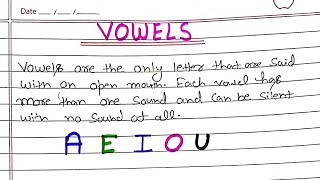 Date __/__/__
VOWELS
Vowels are the only letter that are said
with an open mouth. Each vowel has
more than one sound and can be silent
with no sound at all.
A E I O U